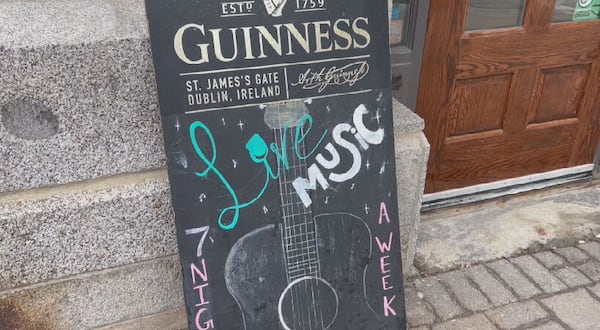 ESTD 1759
GUINNESS
ST. JAMES'S GATE
DUBLIN, IRELAND
Arth Guinness
Live
MUSiC
7 NIG
A WEEK